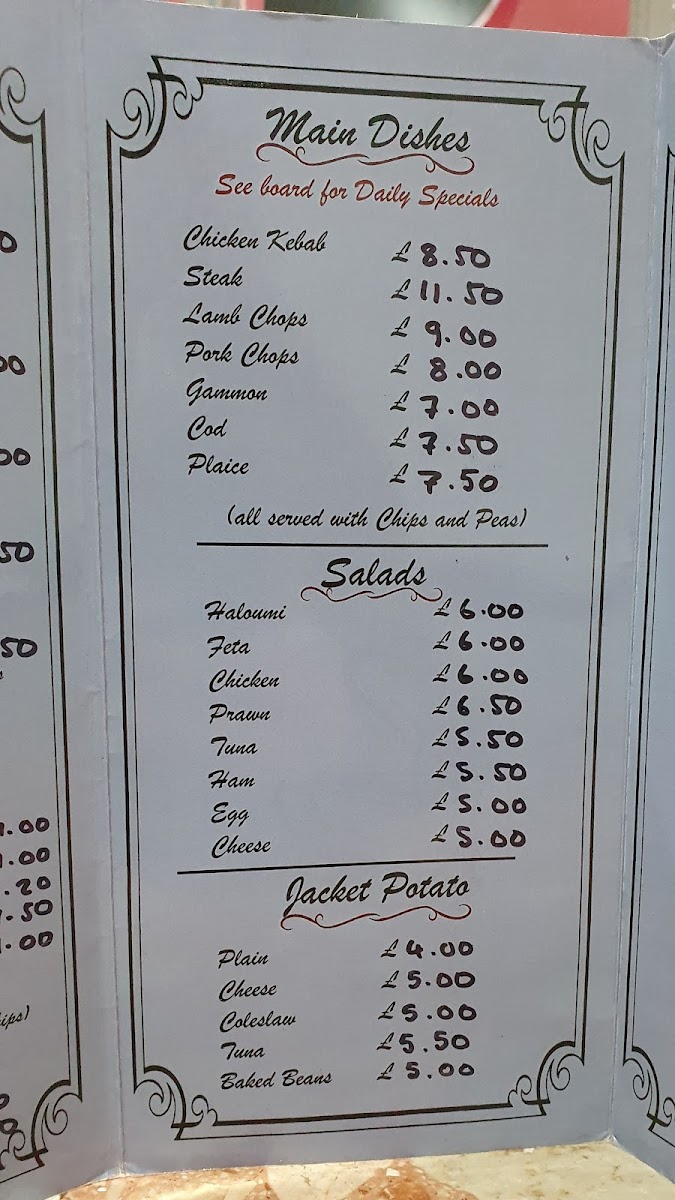 Main Dishes
See board for Daily Specials
Chicken Kebab £ 8.50
Steak £ 11.50
Lamb Chops £ 9.00
Pork Chops £ 8.00
Gammon £ 7.00
Cod £ 7.50
Plaice £ 7.50
(all served with Chips and Peas)
Salads
Haloumi £ 6.00
Feta £ 6.00
Chicken £ 6.00
Prawn £ 6.50
Tuna £ 5.50
Ham £ 5.50
Egg £ 5.00
Cheese £ 5.00
Jacket Potato
Plain £ 4.00
Cheese £ 5.00
Coleslaw £ 5.00
Tuna £ 5.50
Baked Beans £ 5.00